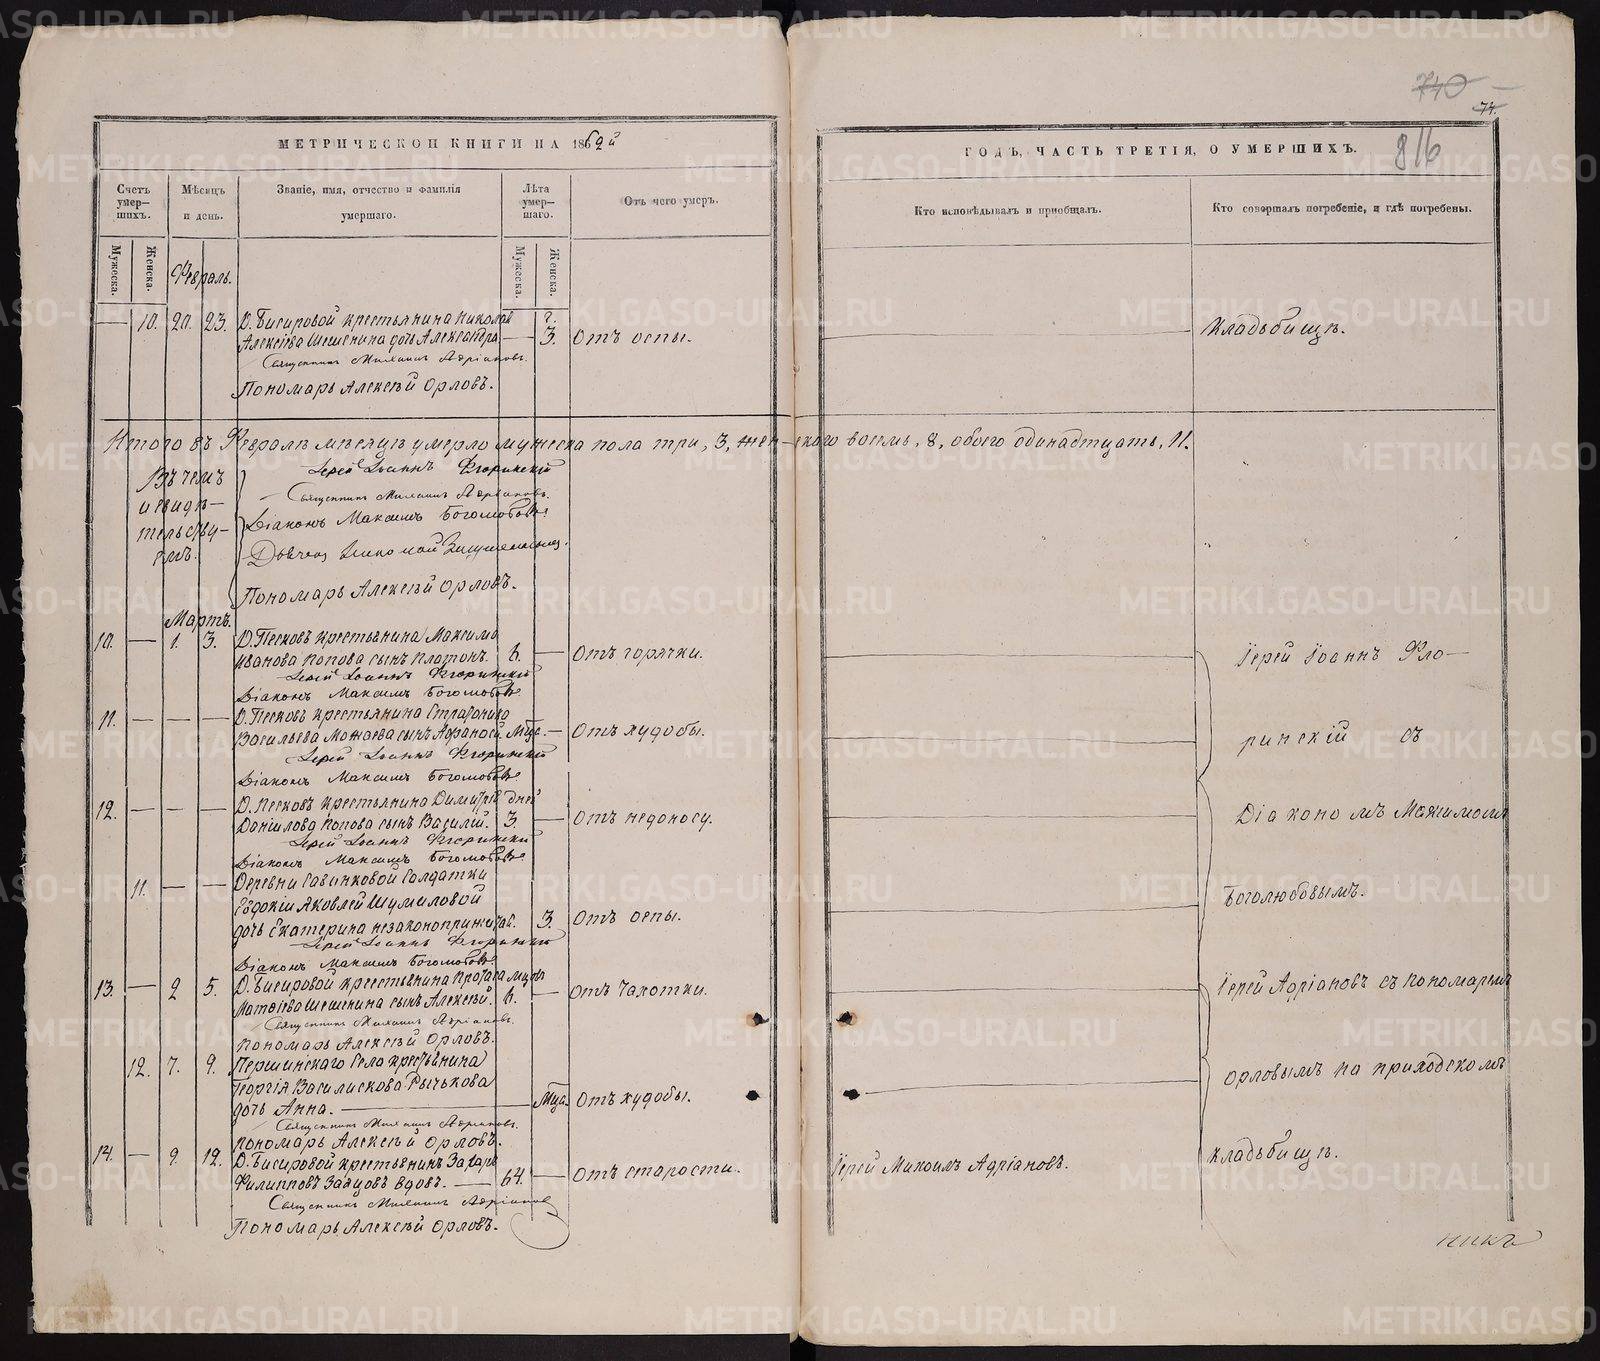 740
77.
816
МЕТРИЧЕСКОЙ КНИГИ НА 1862й
ГОДЪ, ЧАСТЬ ТРЕТІЯ, О УМЕРШИХЪ.
Счетъ умер— шихъ.
Мѣсяцъ и день.
Званіе, имя, отчество и фамилія умершаго.
Лѣта умер— шаго.
Отъ чего умеръ.
Кто исповѣдывалъ и пріобщалъ.
Кто совершалъ погребеніе, и гдѣ погребены.
Мужеска. Женска.
Мужеска. Женска.
Февраль.
10. 20. 23. Д. Бисировой крестьянина Николая г.
Алексѣева Шешенина дочь Александра — 3. Отъ оспы. Кладьбищѣ.
Священникъ Михаилъ Адріановъ.
Пономарь Алексѣй Орловъ.
Итого въ Февралѣ мѣсяцѣ умерло мужеска пола три, 3, жен—скаго восемь, 8, обоего одинадтцать, 11.
Въ чемъ Іерей Іоаннъ Флоринскій
и свидѣ— Священникъ Михаилъ Адріановъ.
тельству— Діаконъ Максимъ Боголюбовъ
емъ.
Пономарь Алексѣй Орловъ.
Мартъ.
10. — 1. 3. Д. Песковъ крестьянина Максима
Иванова Попова сынъ Платонъ. 6. — Отъ горячки. Іерей Іоаннъ Фло—
Іерей Іоаннъ Флоринскій
Діаконъ Максимъ Боголюбовъ
11. — — — Д. Песковъ крестьянина Стратоника
Васильева Можаева сынъ Афанасій. мѣс. — Отъ худобы. ринскій съ
Іерей Іоаннъ Флоринскій
Діаконъ Максимъ Боголюбовъ
12. — — — Д. Песковъ крестьянина Димитрія дней
Даніилова Попова сынъ Василій. 3. — Отъ недоносу. Діакономъ Максимомъ
Іерей Іоаннъ Флоринскій
Діаконъ Максимъ Боголюбовъ
11. — — Деревни Савинковой Солдатки
Евдокіи Яковлей Шумиловой Боголюбовымъ.
дочь Екатерина незаконоприжитая. 3. Отъ оспы.
Іерей Іоаннъ Флоринскій
Діаконъ Максимъ Боголюбовъ
13. — 2 5. Д. Бисировой крестьянина Протаса мцовъ Іерей Адріановъ съ Пономаремъ
Матѳіева Шешенина сынъ Алексѣй. 6. — Отъ чахотки.
Священникъ Михаилъ Адріановъ.
Пономарь Алексѣй Орловъ.
12. 7. 9. Першинскаго Села крестьянина
Георгія Василискова Рычькова Орловымъ на приходскомъ
дочь Анна. — Мца. Отъ худобы.
Священникъ Михаилъ Адріановъ.
Пономарь Алексѣй Орловъ.
14. — 9. 12. Д. Бисировой крестьянинъ Захаръ
Филипповъ Заяцовъ вдовъ. — 64. — Отъ старости. Іерей Михаилъ Адріановъ. кладьбищѣ.
Священникъ Михаилъ Адріановъ
Пономарь Алексѣй Орловъ.
никъ
METRIKI.GASO-URAL.RU